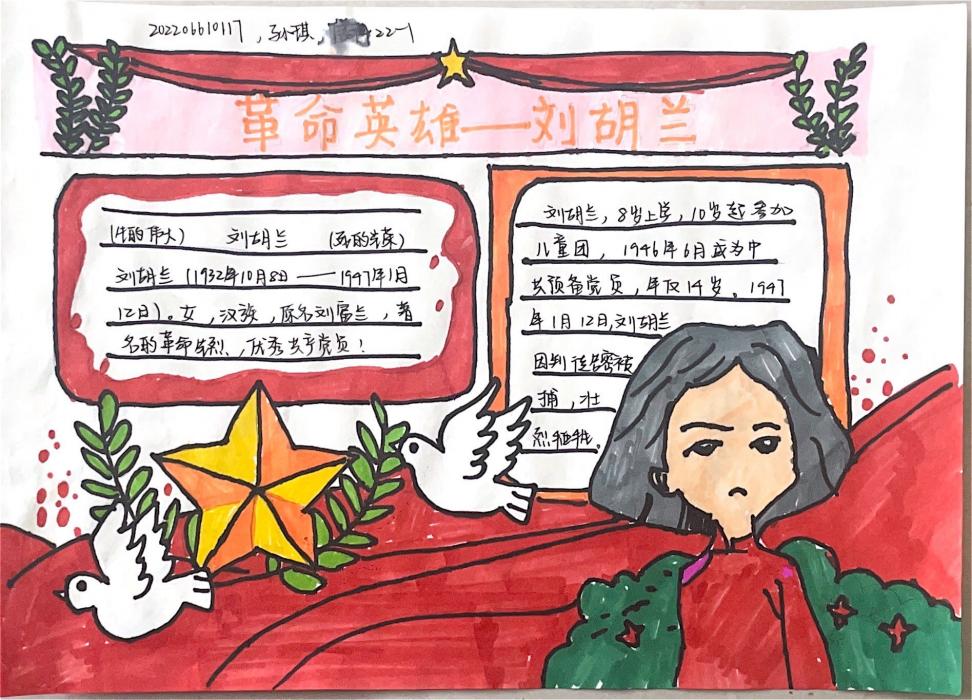 202206610117，孙琪，221
革命英雄——刘胡兰
(生的伟大) 刘胡兰 (死的光荣)
刘胡兰(1932年10月8日——1947年1月
12日)。女，汉族，原名刘富兰，著
名的革命先烈、优秀共产党员！
刘胡兰，8岁上学，10岁起参加
儿童团，1946年6月成为中
共预备党员，年仅14岁。1947
年1月12日,刘胡兰
因叛徒告密被
捕，壮
烈牺牲。